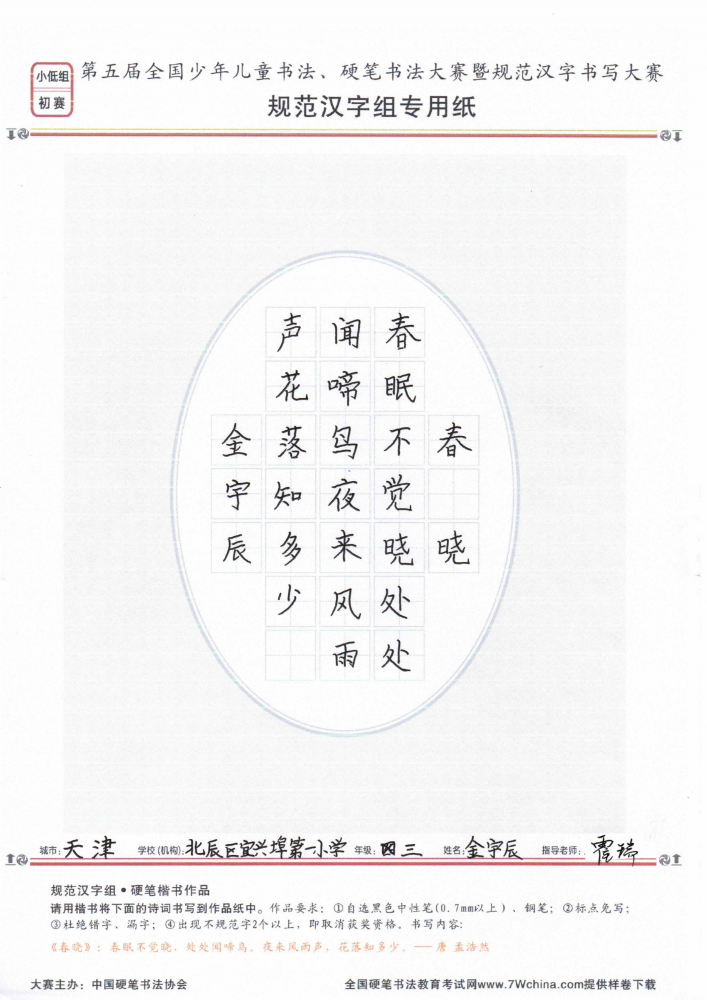 小低组
初赛
第五届全国少年儿童书法、硬笔书法大赛暨规范汉字书写大赛
规范汉字组专用纸
春晓
春眠不觉晓处处
闻啼鸟夜来风雨
声花落知多少
金宇辰
城市:天津 学校(机构):北辰区宜兴埠第一小学 年级:四三 姓名:金宇辰 指导老师:霍瑞
规范汉字组•硬笔楷书作品
请用楷书将下面的诗词书写到作品纸中。作品要求:①自选黑色中性笔(0.7mm以上)、钢笔;②标点免写;
③杜绝错字、漏字;④出现不规范字2个以上,即取消获奖资格。书写内容:
《春晓》:春眠不觉晓,处处闻啼鸟。夜来风雨声,花落知多少。——唐 孟浩然
大赛主办:中国硬笔书法协会 全国硬笔书法教育考试网www.7Wchina.com提供样卷下载